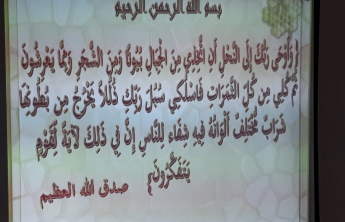 بسم الله الرحمن الرحيم
﴿ وَأَوْحَى رَبُّكَ إِلَى النَّحْلِ أَنِ اتَّخِذِي مِنَ الْجِبَالِ بُيُوتًا وَمِنَ الشَّجَرِ وَمِمَّا يَعْرِشُونَ
ثُمَّ كُلِي مِن كُلِّ الثَّمَرَاتِ فَاسْلُكِي سُبُلَ رَبِّكِ ذُلُلًا يَخْرُجُ مِن بُطُونِهَا
شَرَابٌ مُّخْتَلِفٌ أَلْوَانُهُ فِيهِ شِفَاء لِلنَّاسِ إِنَّ فِي ذَلِكَ لَآيَةً لِّقَوْمٍ
يَتَفَكَّرُونَ ﴾
صدق الله العظيم